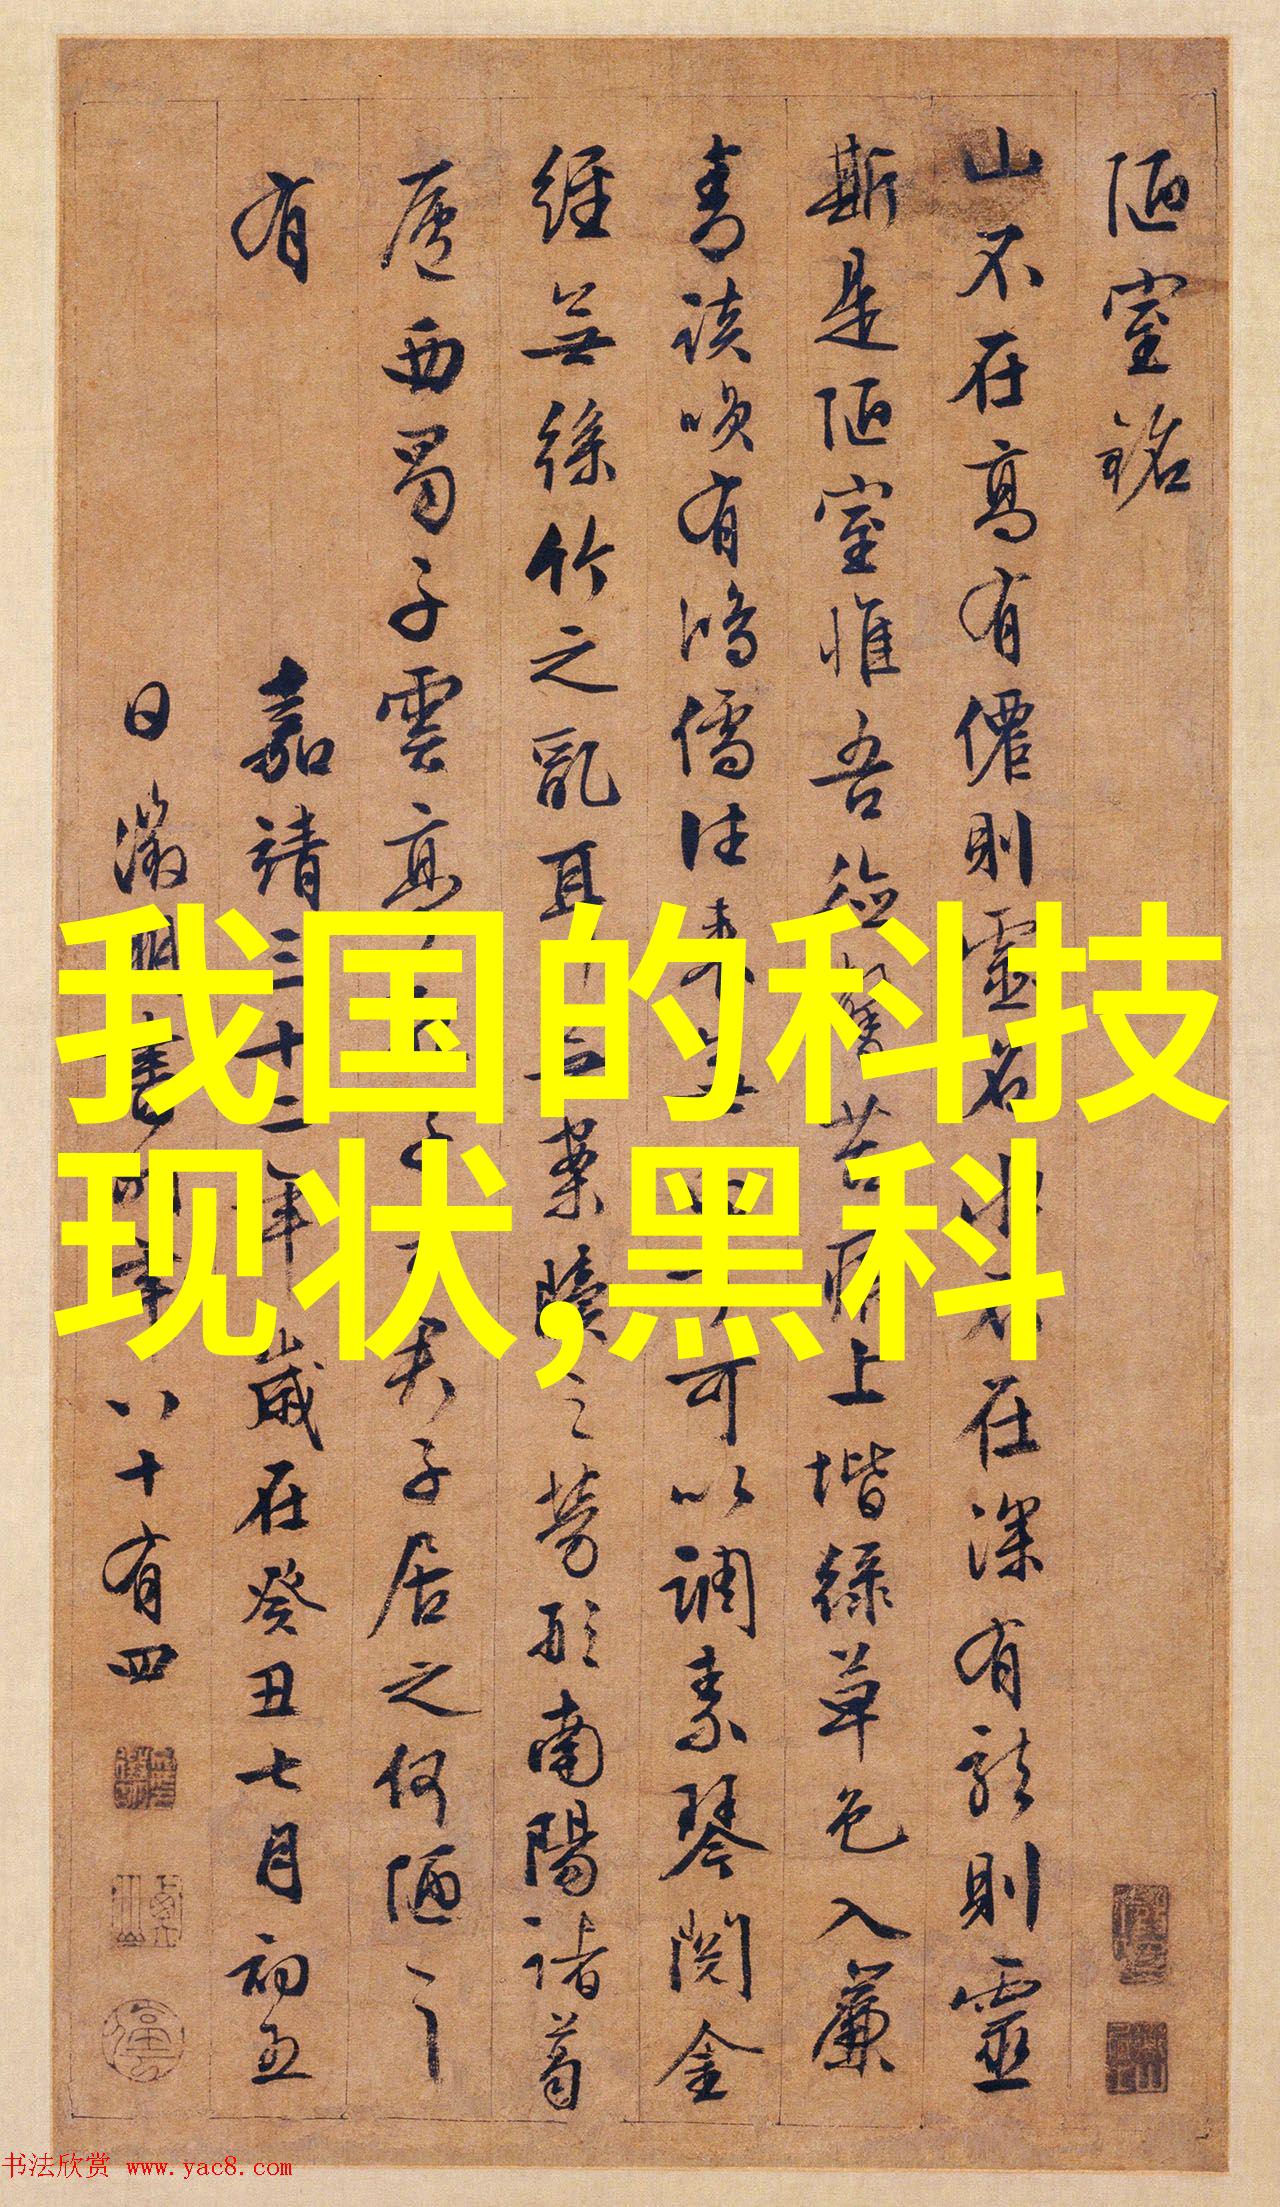 陋室銘
山不在髙有僊則靈名水不在深有龍則靈
斯是陋室惟吾德馨苔痕上堦緑草色入簾
青談唉有鴻儒往来無白丁可以調素琴閱金
經無絲竹之亂耳無案牘之勞形南陽諸葛
廬西蜀子雲亭孔子云君子居之何陋之
有
嘉靖三十二年歲在癸丑七月初五
日徵明書時年八十有四
我国的科技
现状,黑科
书法欣赏 www.yac8.com